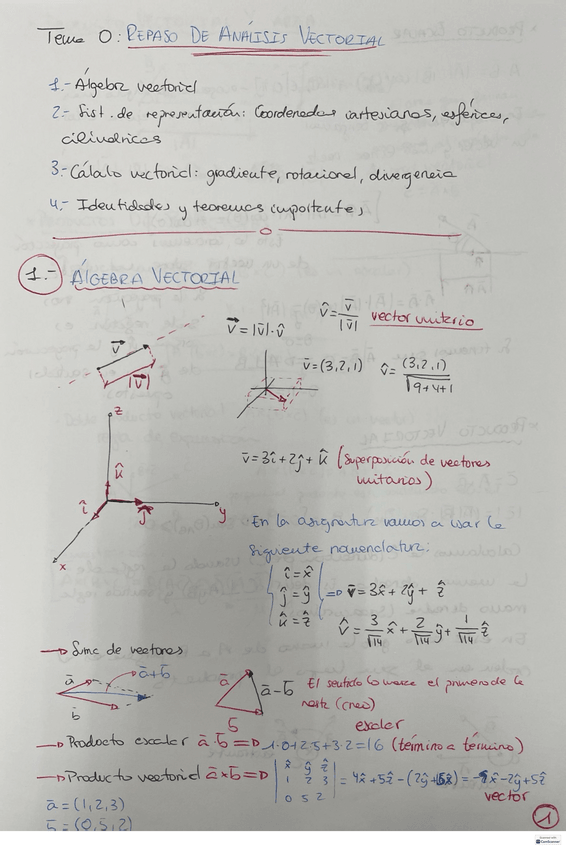 Tema 0: REPASO DE ANÁLISIS VECTORIAL
1.- Álgebra vectorial
2.- Sist. de representación: Coordenadas cartesianas, esféricas,
cilíndricas
3.- Cálculo vectorial: gradiente, rotacional, divergencia
4.- Identidades y teoremas importantes
1.- ÁLGEBRA VECTORIAL
v
|v|
v = |v| · v̂
v̂ = v̄/|v̄| vector unitario
v̄ = (3,2,1) v̂ = (3,2,1)/√9+4+1
z
k̂
î
ĵ
y
x
v̄ = 3î + 2ĵ + k̂ (Superposición de vectores
unitarios)
En la asignatura vamos a usar la
siguiente nomenclatura:
î = x̂
ĵ = ŷ
k̂ = ẑ
=> v̄ = 3x̂ + 2ŷ + ẑ
v̂ = 3/√14 x̂ + 2/√14 ŷ + 1/√14 ẑ
→ Suma de vectores
ā
b̄
ā+b̄
ā
b̄
ā-b̄
El sentido lo marca el primero de la
resta (creo)
escalar
→ Producto escalar ā·b̄ => 1·0+2·5+3·2=16 (término a término)
→ Producto vectorial ā×b̄ => | x̂ ŷ ẑ | 1 2 3 | 0 5 2 | = 4x̂+5ẑ-(2ŷ+15x̂) = -x̂-2ŷ+5ẑ
vector
ā = (1,2,3)
b̄ = (0,5,2)
1
CamScanner